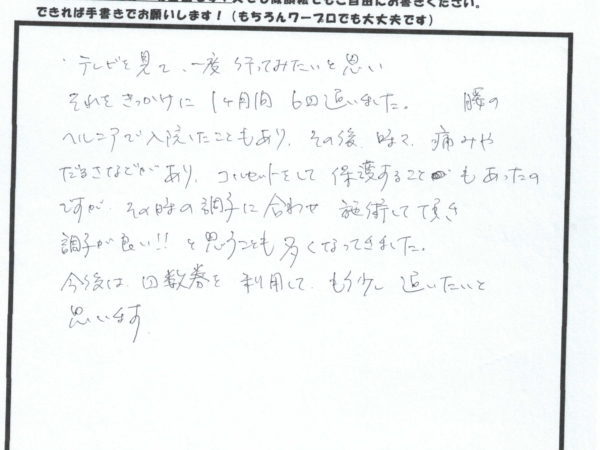 でもご自由にお書きください。
できれば手書きでお願いします！（もちろんワープロでも大丈夫です）
・テレビを見て、一度行ってみたいと思い
それをきっかけに 1ヶ月間 6回通いました。 腰の
ヘルニアで入院したこともあり、その後、時々、痛みや
だるさなどがあり、コルセットをして保護することもあったの
ですが、その時の調子に合わせ 施術して頂き
調子が良い!! と思うことも多くなってきました。
今後は、回数券を利用して、もう少し通いたいと
思います